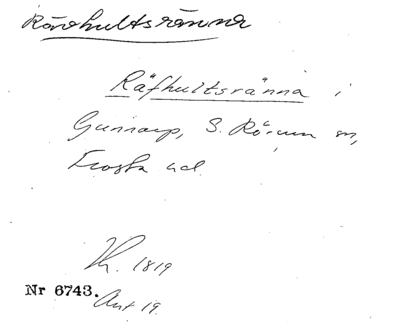 Rävhultsränna
Räfhultsränna i
Gunnarp, S. Rörum sn,
Frosta hd.
Lk. 1819
Nr 6743.
Ant 19.